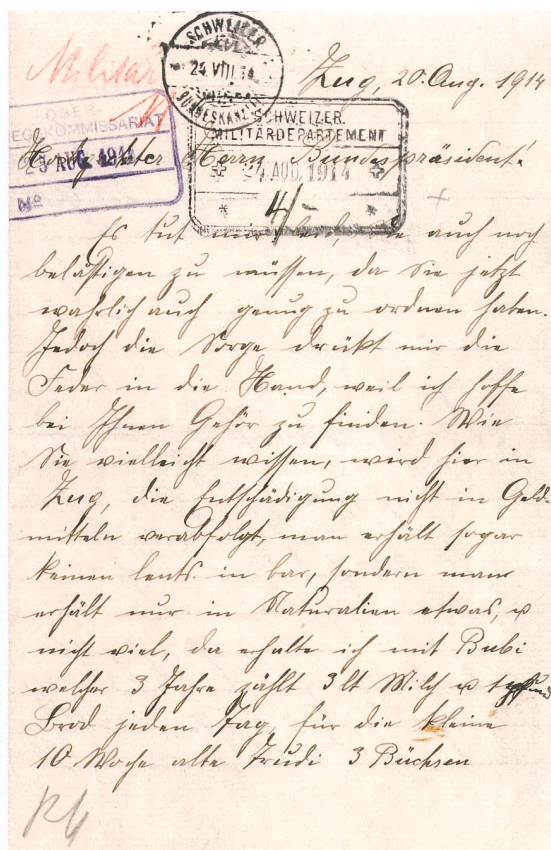 Militär
SCHWEIZER.
24 VIII 14
BUNDESKANZLEI
Zug, 20. Aug. 1914
OBER-
KRIEGSKOMMISSARIAT
25 AUG. 1914
No
SCHWEIZER.
MILITÄRDEPARTEMENT
24. AUG. 1914
4/-
Hochgeehrter Herrn Bundespräsident!
Es tut mir leid, Sie auch noch
belästigen zu müssen, da Sie jetzt
wahrlich auch genug zu ordnen haben.
Jedoch die Sorge drükt mir die
Feder in die Hand, weil ich hoffe
bei Ihnen Gehör zu finden. Wie
Sie vielleicht wissen, wird hier in
Zug, die Entschädigung nicht in Geld-
mitteln verabfolgt, man erhält sogar
keinen Cents. in bar, sondern man
erhält nur in Naturalien etwas, u
nicht viel, da erhalte ich mit Bubi
welcher 3 Jahre zählt 3 lt Milch u 1
Brod jeden Tag für die kleine
10 Woche alte Trudi 3 Büchsen